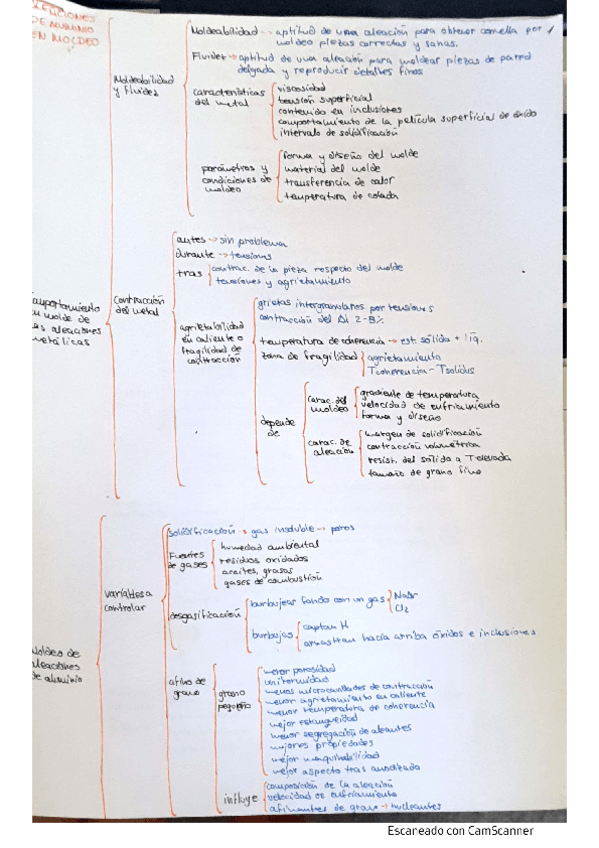 DE ALUMINIO
EN MOLDEO
Moldeabilidad → aptitud de una aleación para obtener con ella por
moldeo piezas correctas y sanas.
Fluidez → aptitud de una aleación para moldear piezas de pared
delgada y reproducir detalles finos
Moldeabilidad
y fluidez
características
del metal
viscosidad
tensión superficial
contenido en inclusiones
comportamiento de la película superficial de óxido
intervalo de solidificación
parámetros y
condiciones de
moldeo
forma y diseño del molde
material del molde
transferencia de calor
temperatura de colada
Contracción
del metal
antes → sin problema
durante → tensiones
tras
contrac. de la pieza respecto del molde
tensiones y agrietamiento
en molde de
las aleaciones
metálicas
agrietabilidad
en caliente o
fragilidad de
contracción
grietas intergranulares por tensiones
contracción del Al 2-8%
temperatura de coherencia → est. sólida + líq.
zona de fragilidad
agrietamiento
Tcoherencia - Tsolidus
depende
de
carac. del
moldeo
gradiente de temperatura
velocidad de enfriamiento
forma y diseño
carac. de
aleación
margen de solidificación
contracción volumétrica
resist. del sólido a T elevada
tamaño de grano fino
Moldeo de
aleaciones
de aluminio
variables a
controlar
solidificación → gas insoluble → poros
Fuentes
de gases
humedad ambiental
residuos oxidados
aceites, grasas
gases de combustión
desgasificación
burbujear fondo con un gas
Cl2
burbujas
captan H
arrastran hacia arriba óxidos e inclusiones
afino de
grano
grano
pequeño
menor porosidad
uniformidad
menos microcavidades de contracción
menor agrietamiento en caliente
menor temperatura de coherencia
mejor estanqueidad
menor segregación de aleantes
mejores propiedades
mejor maquinabilidad
mejor aspecto tras anodizado
influye
composición de la aleación
velocidad de enfriamiento
afinantes de grano → nucleantes
Escaneado con CamScanner